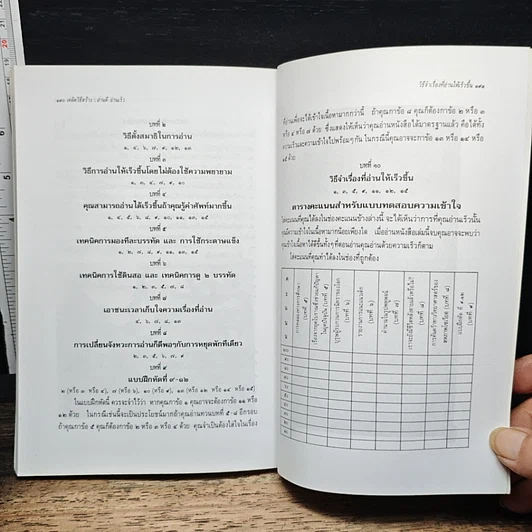 ๑๓๐ เคล็ดวิธีสร้าง : อ่านดี อ่านเร็ว
บทที่ ๒
วิธีตั้งสมาธิในการอ่าน
๑, ๔, ๖, ๗, ๙, ๑๒, ๑๓
บทที่ ๓
วิธีการอ่านให้เร็วขึ้นโดยไม่ต้องใช้ความพยายาม
๑, ๓, ๔, ๗, ๙, ๑๐
บทที่ ๔
คุณสามารถอ่านได้เร็วขึ้นถ้าคุณรู้คำศัพท์มากขึ้น
๑, ๔, ๕, ๖, ๘, ๙, ๑๐, ๑๑, ๑๓, ๑๕
บทที่ ๕
เทคนิคการมองทีละบรรทัด และ การใช้กระดาษแข็ง
บทที่ ๖
เทคนิคการใช้ดินสอ และ เทคนิคการดู ๒ บรรทัด
๑, ๒, ๓, ๕, ๗, ๘
บทที่ ๗
เอาชนะเวลาเก็บใจความเรื่องที่อ่าน
๔, ๖, ๗, ๘, ๑๐
บทที่ ๘
การเปลี่ยนจังหวะการอ่านก็ดีพอๆกับการหยุดพักทีเดียว
๒, ๓, ๕, ๖, ๗, ๙
บทที่ ๙
แบบฝึกหัดที่ ๙-๑๒
๒ (หรือ ๓ หรือ ๔), ๗ (หรือ ๖), ๑๐ (หรือ ๙), ๑๓ (หรือ ๑๒ หรือ ๑๔ หรือ ๑๕)
ในแบบฝึกหัดนี้ ควรจะจำไว้ว่า หากคุณกาข้อ ๑ คุณอาจจะต้องกาข้อ ๑๑ หรือ
๑๒ ด้วย ในกรณีเช่นนี้จะเป็นประโยชน์มากถ้าคุณอ่านทวนบทที่ ๕-๘ อีกรอบ
ถ้าคุณกาข้อ ๕ คุณก็ต้องกาข้อ ๒ หรือ ๓ หรือ ๔ ด้วย คุณจำเป็นต้องใส่ใจในเรื่อง
วิธีจำเรื่องที่อ่านให้เร็วขึ้น ๑๓๑
ที่อ่านเพื่อจะได้เข้าใจเนื้อหามากกว่านี้ ถ้าคุณกาข้อ ๘ คุณก็ต้องกาข้อ ๒ หรือ ๓
หรือ ๔ หรือ ๗ ด้วย ซึ่งแสดงให้เห็นว่าคุณอ่านหนังสือได้มาตรฐานแล้ว คือได้ทั้ง
ความเร็วและความเข้าใจไปพร้อมๆ กัน ในกรณีนี้คุณอาจจะกาข้อ ๑๓ หรือ ๑๔ หรือ
๑๕ ด้วย
บทที่ ๑๐
วิธีจำเรื่องที่อ่านให้เร็วขึ้น
๑, ๓, ๕, ๙, ๑๑, ๑๒, ๑๕
ตารางคะแนนสำหรับแบบทดสอบความเข้าใจ
ใส่คะแนนที่คุณได้ลงในช่องตะแนนข้างล่างนี้ จะได้เห็นว่าการที่คุณอ่านเร็วขึ้นนั้น
คุณมีความเข้าใจในเนื้อหามากน้อยเพียงใด เมื่ออ่านหนังสือเล่มนี้จบคุณอาจจะพบว่า
คุณเข้าใจเนื้อหาได้ดีขึ้นทั้งๆ ที่ตอนอ่านคุณอ่านด้วยความเร็วก็ตาม
ใส่คะแนนที่คุณทำได้ลงในช่องที่ถูกต้อง